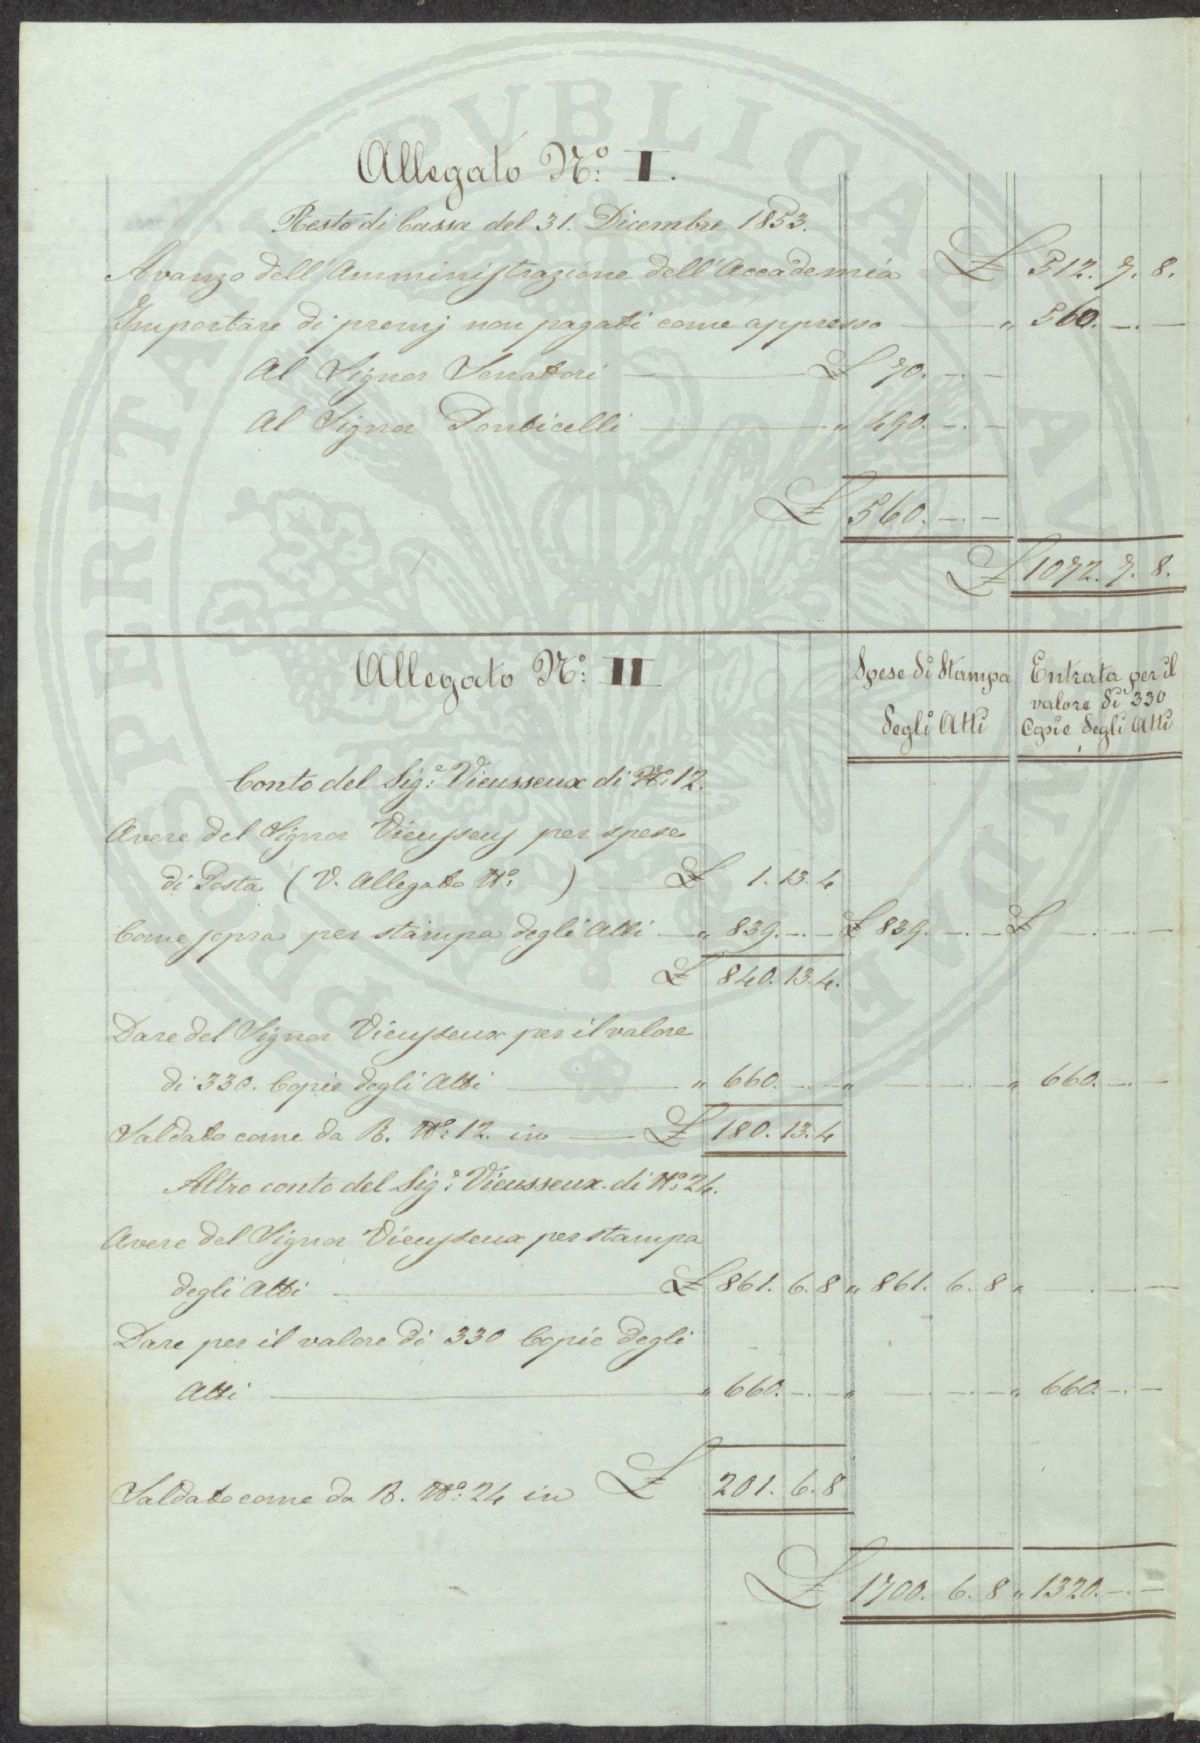 Allegato N.º I.
Resto di Cassa del 31. Dicembre 1853.
Avanzo dell'Amministrazione dell'Accademia £ 512. 7. 8.
Importare di premj non pagati come appresso — „ 560. —. —
Al Signor — £ 70. —. —
Al Signor Ponticelli — „ 490. —. —
£ 560. —. —
£ 1072. 7. 8.
Allegato N.º II
Spese di Stampa degli Atti
Entrata per il valore di 330 Copie degli Atti
Conto del Sig.e Vieusseux di N.º 12.
Avere del Signor Vieusseux per spese
di Posta (V. Allegato N.º ) — £ 1. 13. 4
Come sopra per stampa degli Atti — „ 839. —. — £ 839. —. — £ —. —. —
£ 840. 13. 4.
Dare del Signor Vieusseux per il valore
di 330. Copie degli Atti — „ 660. —. — „ —. — „ 660. —. —
Saldato come da R. N.º 12. in — £ 180. 13. 4
Altro conto del Sig.e Vieusseux di N.º 24.
Avere del Signor Vieusseux per stampa
degli Atti — £ 861. 6. 8 „ 861. 6. 8 „ —. —. —
Dare per il valore di 330 Copie degli
Atti — „ 660. —. — „ —. — „ 660. —. —
Saldato come da R. N.º 24 in £ 201. 6. 8
£ 1700. 6. 8 „ 1320. —. —
PROSPERITATI PUBLICAE AUGENDAE